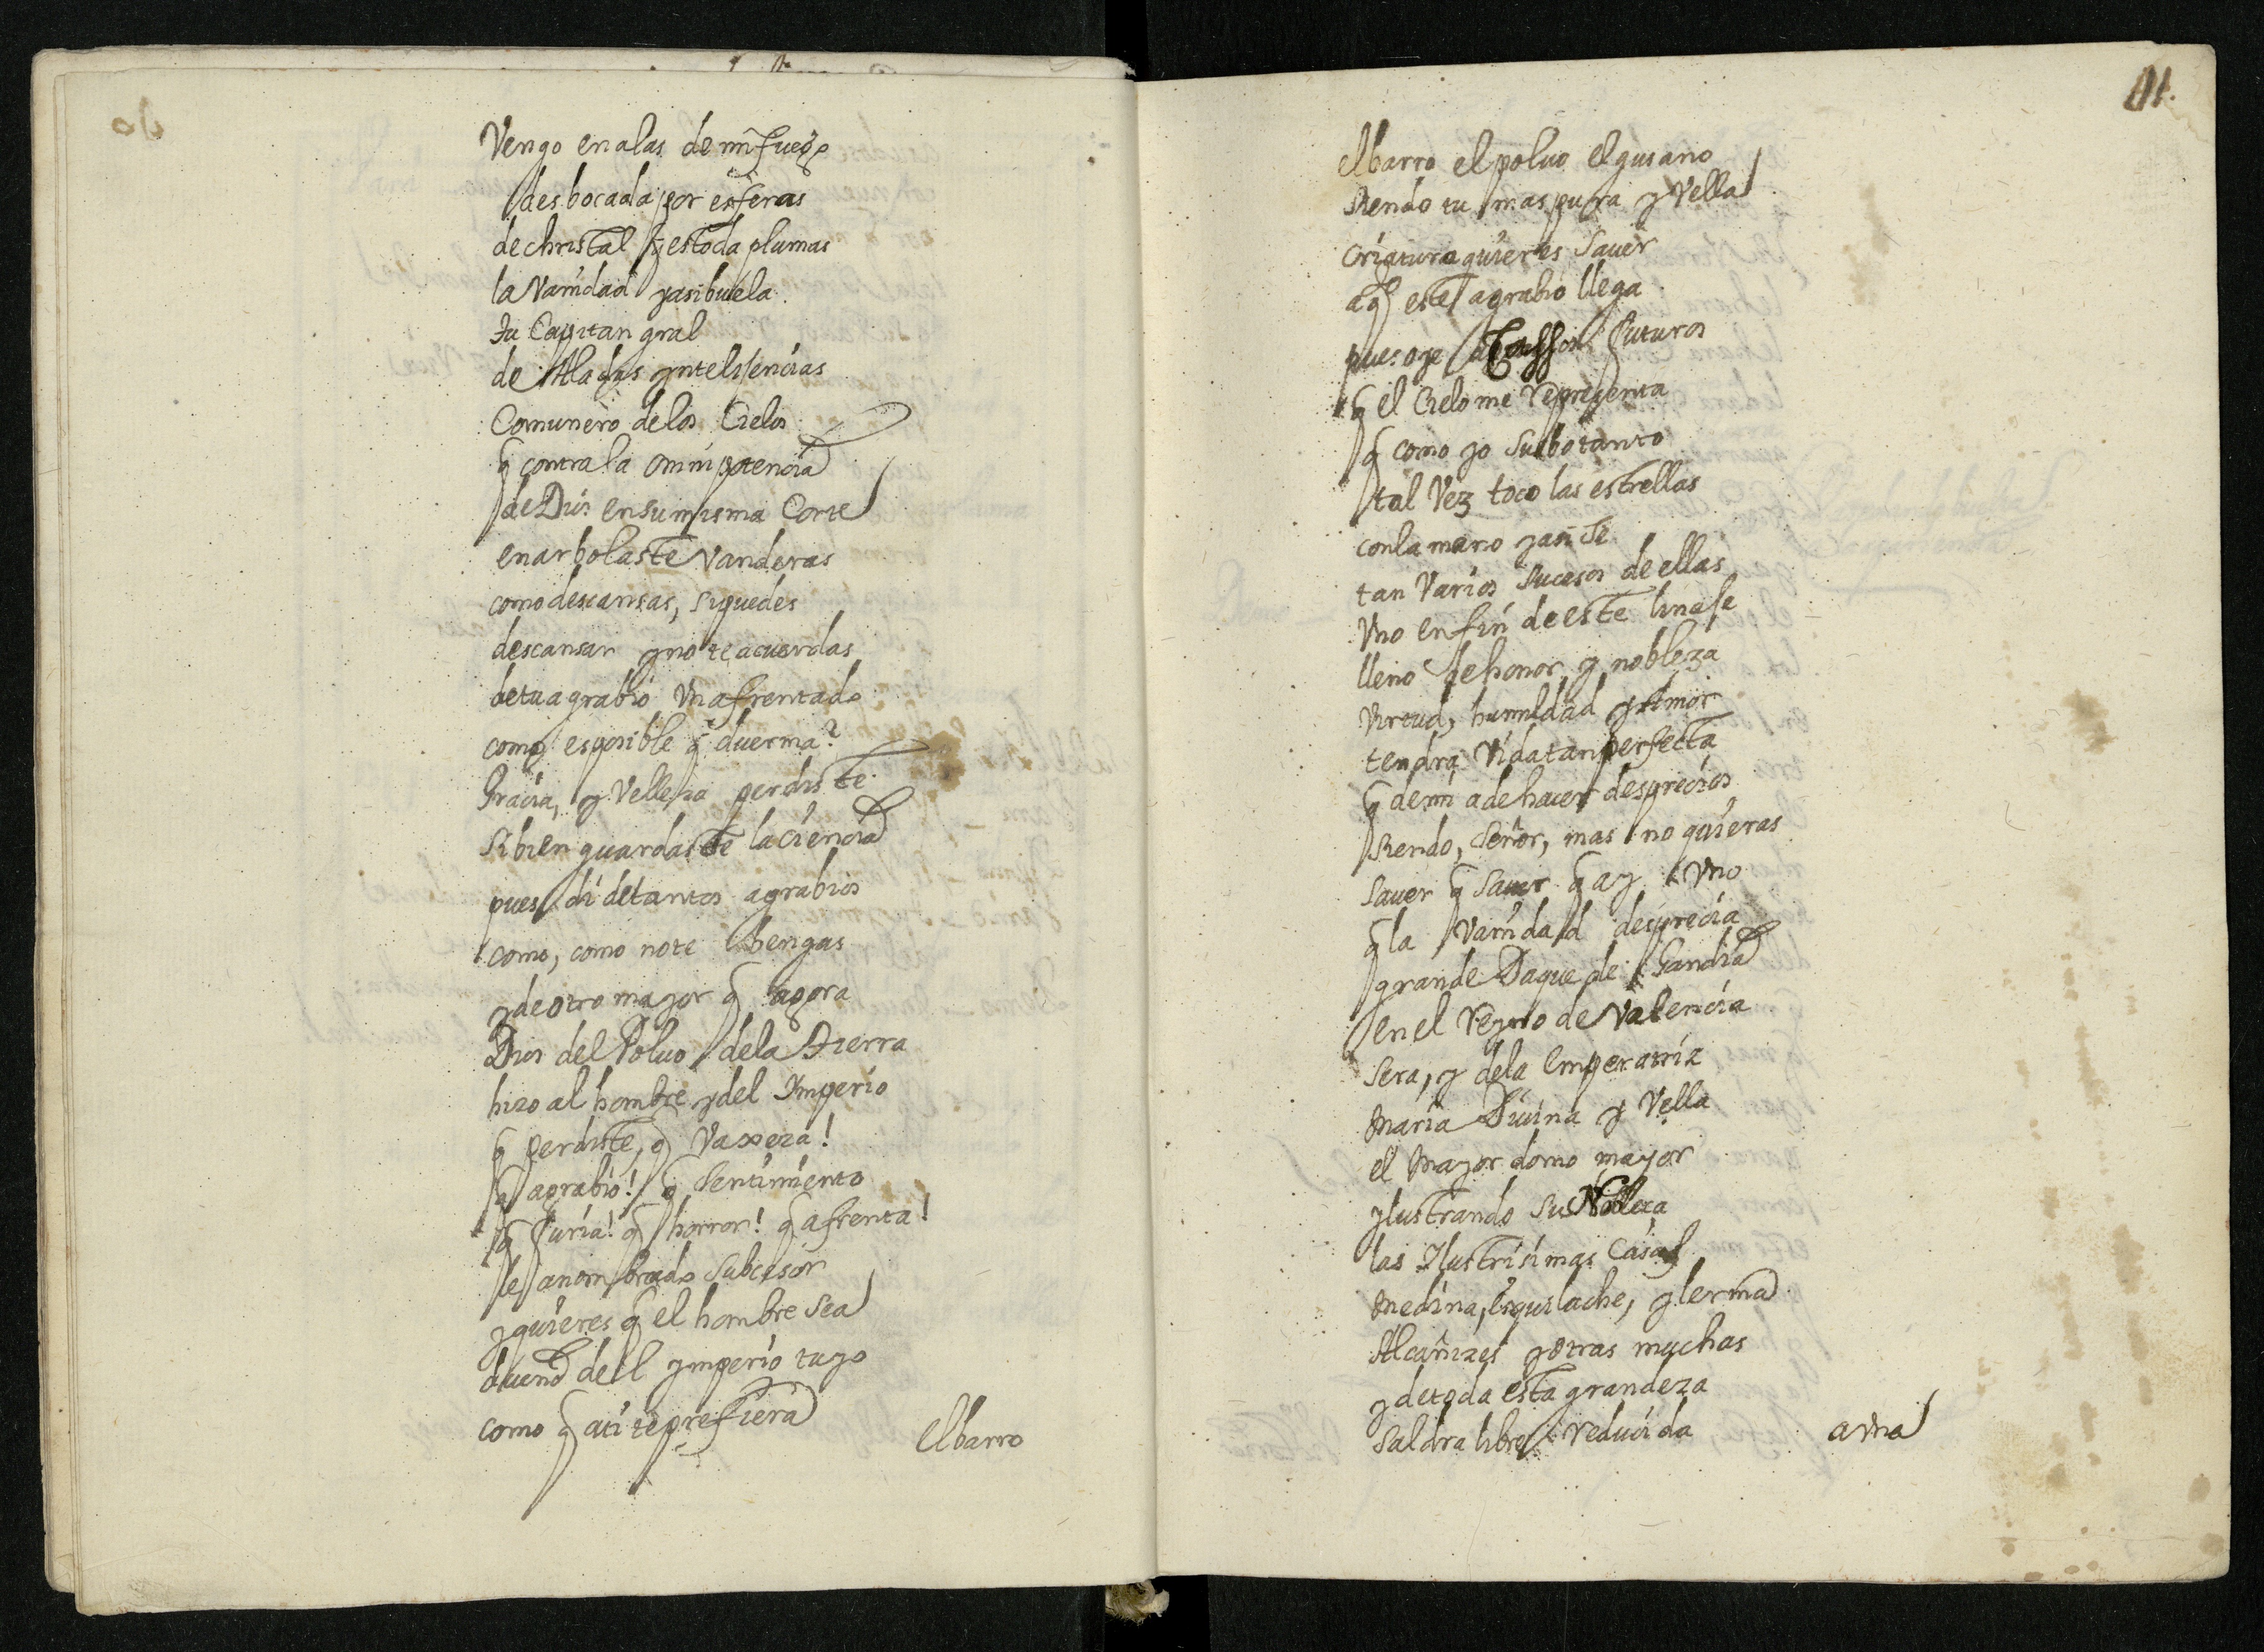 Vengo en alas de mi fuego
desbocada por esferas
de christal q̃ es toda plumas
la Vanidad y asi buela
tu Capitan gral
de Aladas ynteligencias
Comunero de los Cielos
q̃ contra la omnipotencia
de Dios en su misma Corte
enarbolaste vanderas
como descansas, si puedes
descansar y no te acuerdas
de tu agrabio Vn afrentado
como es posible q̃ duerma?
Gracia, y Velleza perdiste
si bien guardaste la ciencia
pues di de tantos agrabios
como, como no te bengas
y de otro mayor q̃ agora
Dios del Poluo de la Tierra
hizo al hombre y del Imperio
q̃ perdiste, q̃ Vaxeza!
q̃ agrabio! q̃ sentimiento
q̃ furia! q̃ horror! q̃ afrenta!
le a nombrado subcesor
y quieres q̃ el hombre sea
dueño del ymperio tuyo
como q̃ a ti te prefiera
El barro
11.
el barro el poluo el gusano
siendo tu mas pura y Vella
criatura quieres sauer
a q̃ este agrabio llega
pues oye futuros
q̃ el Cielo me representa
q̃ como yo subo tanto
tal Vez toco las estrellas
con la mano y asi se
tan Varios sucesos de ellas
Vno en fin de este linaje
lleno de honor y nobleza
virtud, humildad y Amor
tendra Vida tan perfecta
q̃ de mi a de hacer desprecios
siendo, señor, mas no quieras
sauer q̃ sauer q̃ ay Vno
q̃ la Vanidad desprecia
grande Duque de Gandia
en el Reyno de Valencia
sera, y de la Emperatriz
Maria Diuina y Vella
el Mayordomo mayor
ylustrando su Nobleza
las Ilustrisimas Casas
Medina, Esquilache, y lerma
Alcañizes y otras muchas
y de toda esta grandeza
saldra libre reducida
a Vna